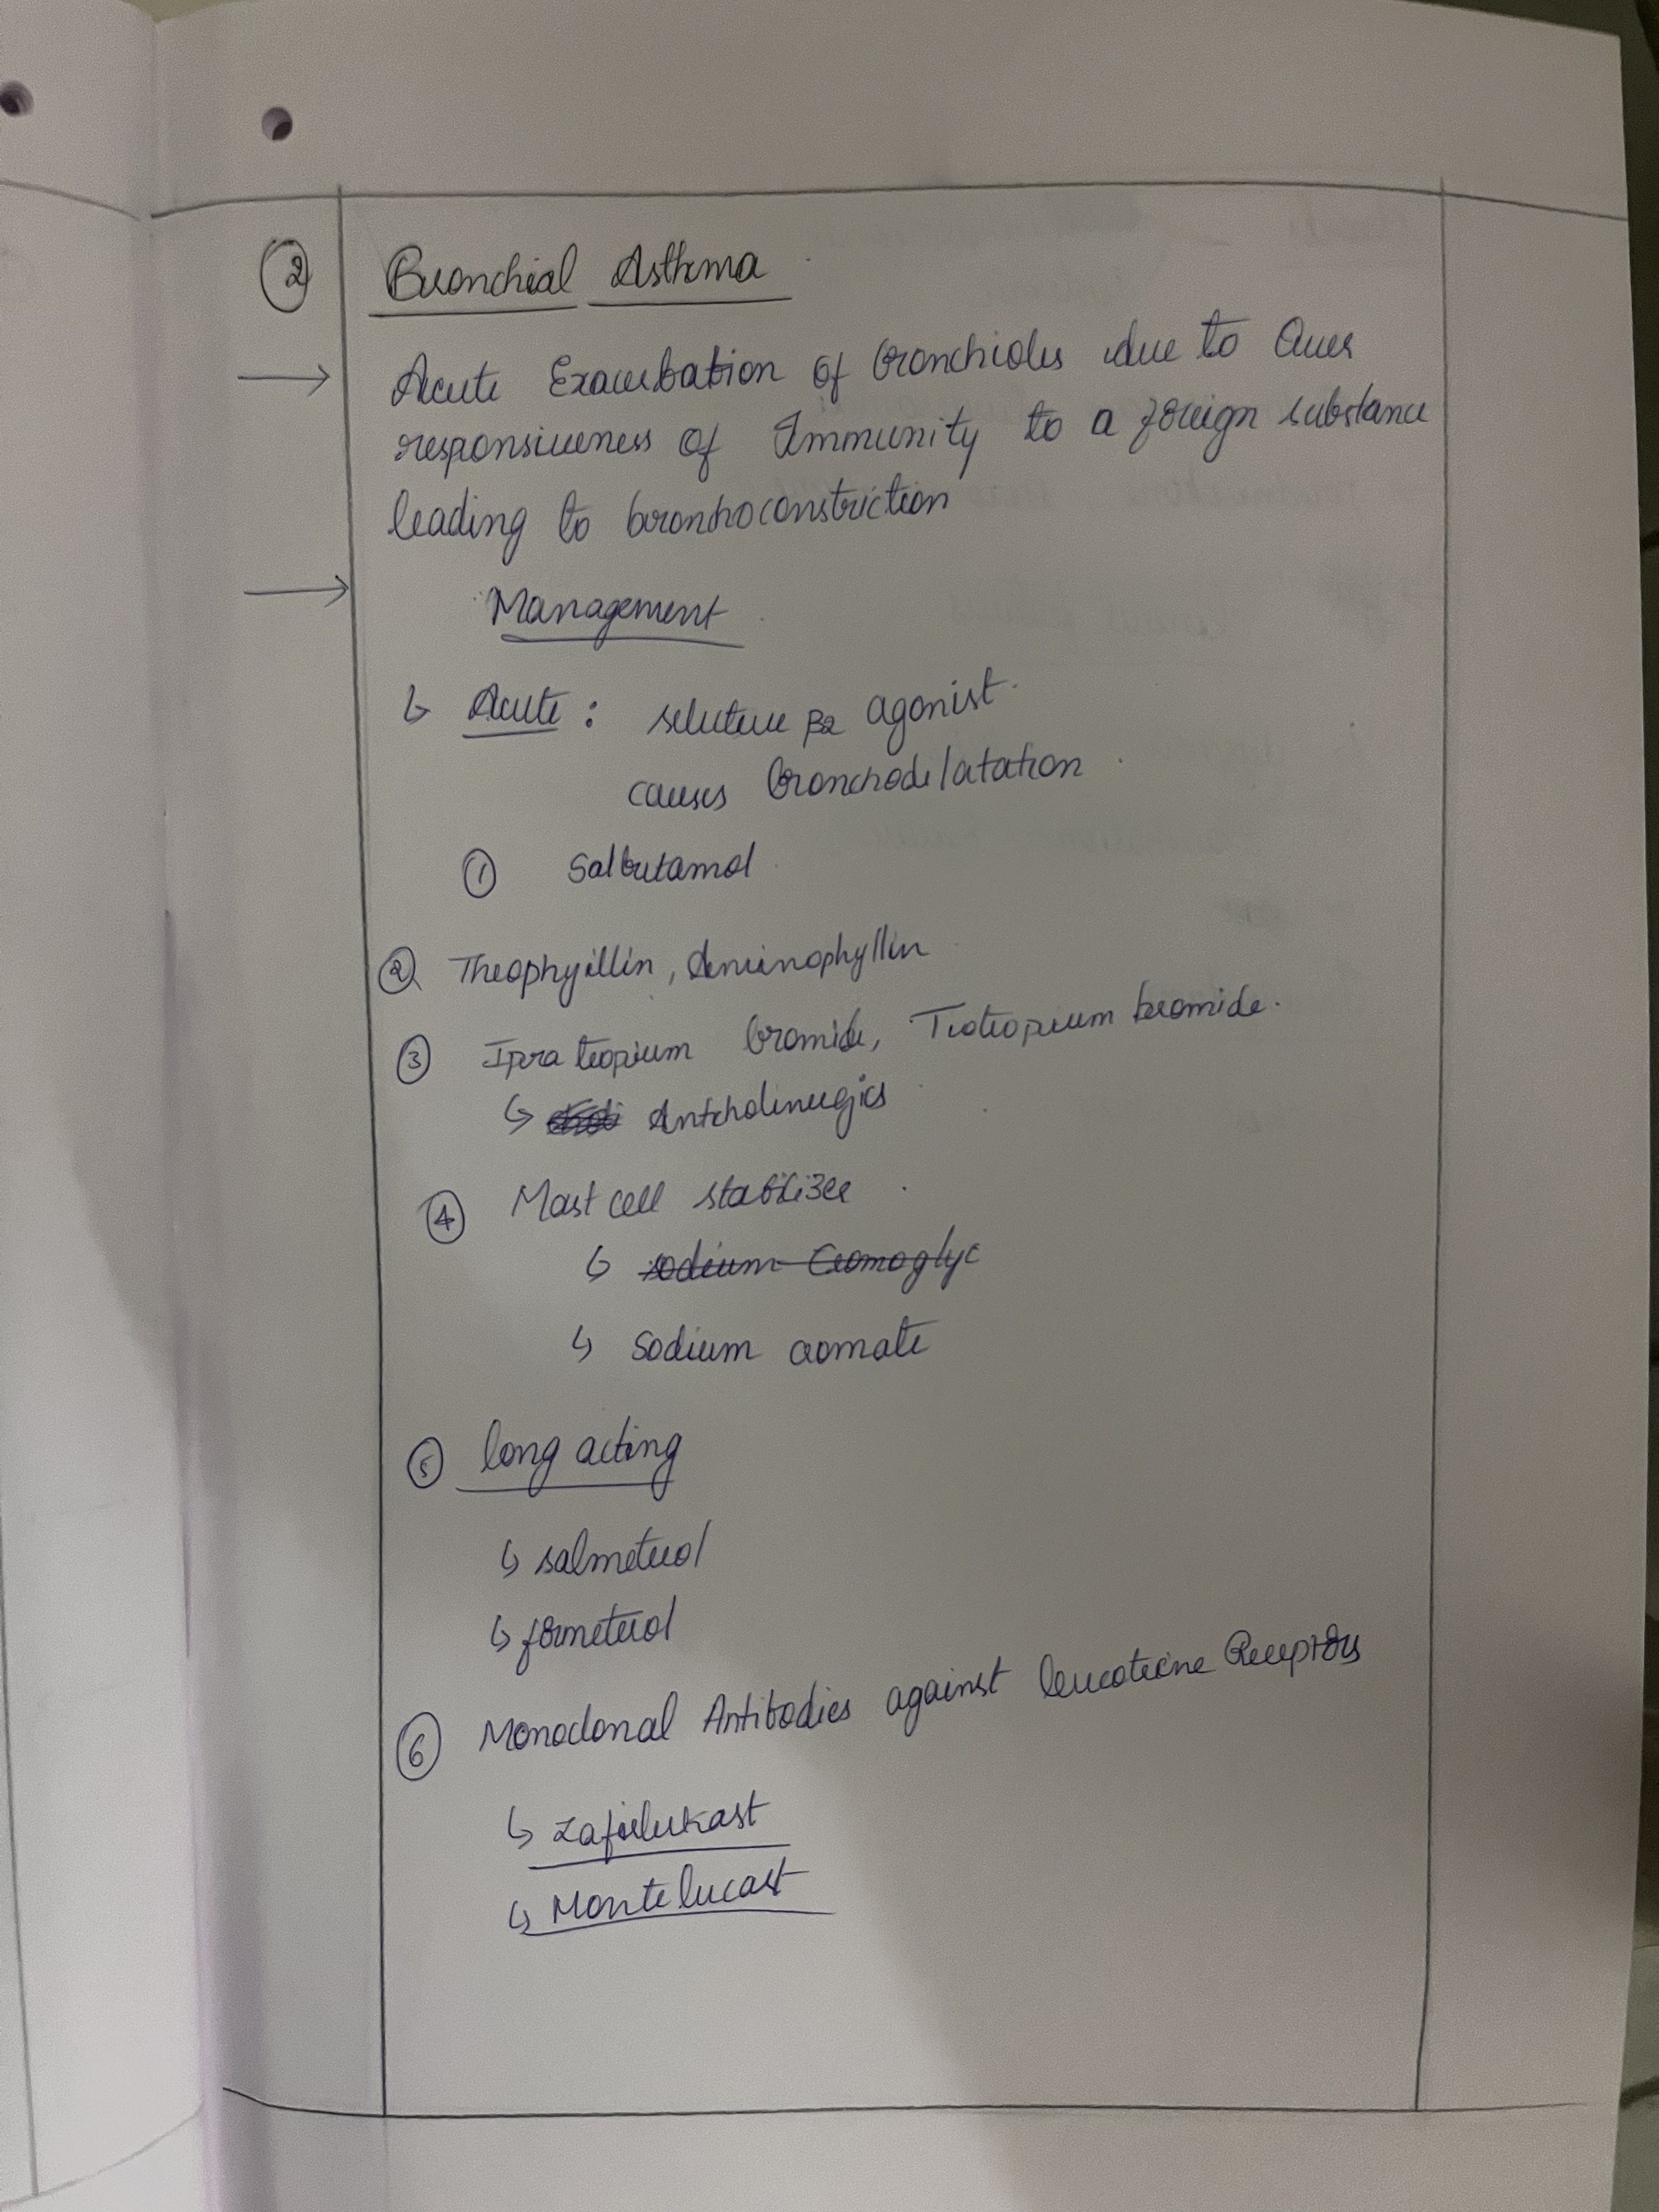 ② Bronchial Asthma
→ Acute Exacerbation of bronchioles due to Over
responsiveness of Immunity to a foreign substance
leading to bronchoconstriction
→ Management
↳ Acute : selective β2 agonist
causes bronchodilatation
① Salbutamol
② Theophyillin, Aminophyllin
③ Ipra tropium bromide, Tiotropium bromide.
↳ Anticholinergics
④ Mast cell stabilizer
↳ sodium Cromoglyc
↳ Sodium cromate
⑤ long acting
↳ salmeterol
↳ formeterol
⑥ Monoclonal Antibodies against leucotriene Receptors
↳ Zafirlukast
↳ Montelucast